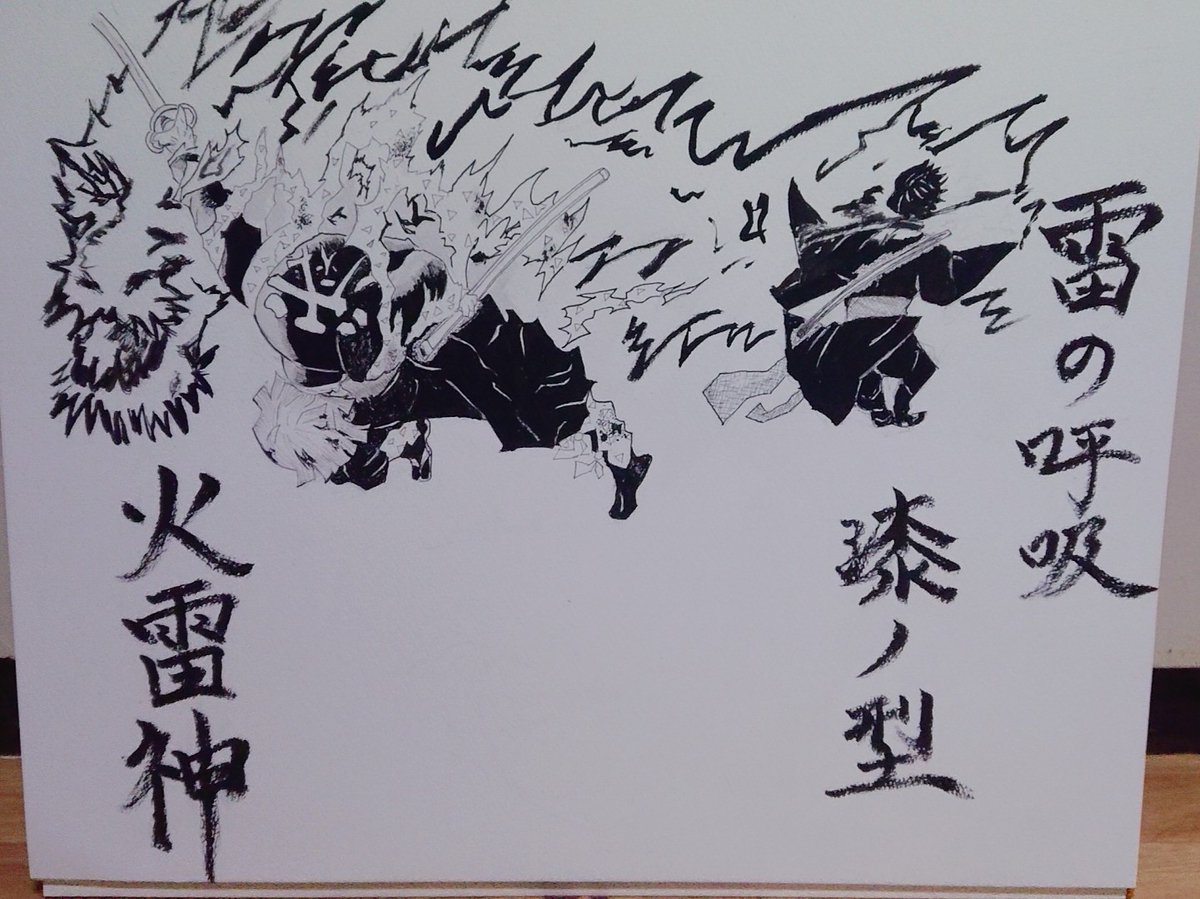 雷の呼吸
漆ノ型
火雷神